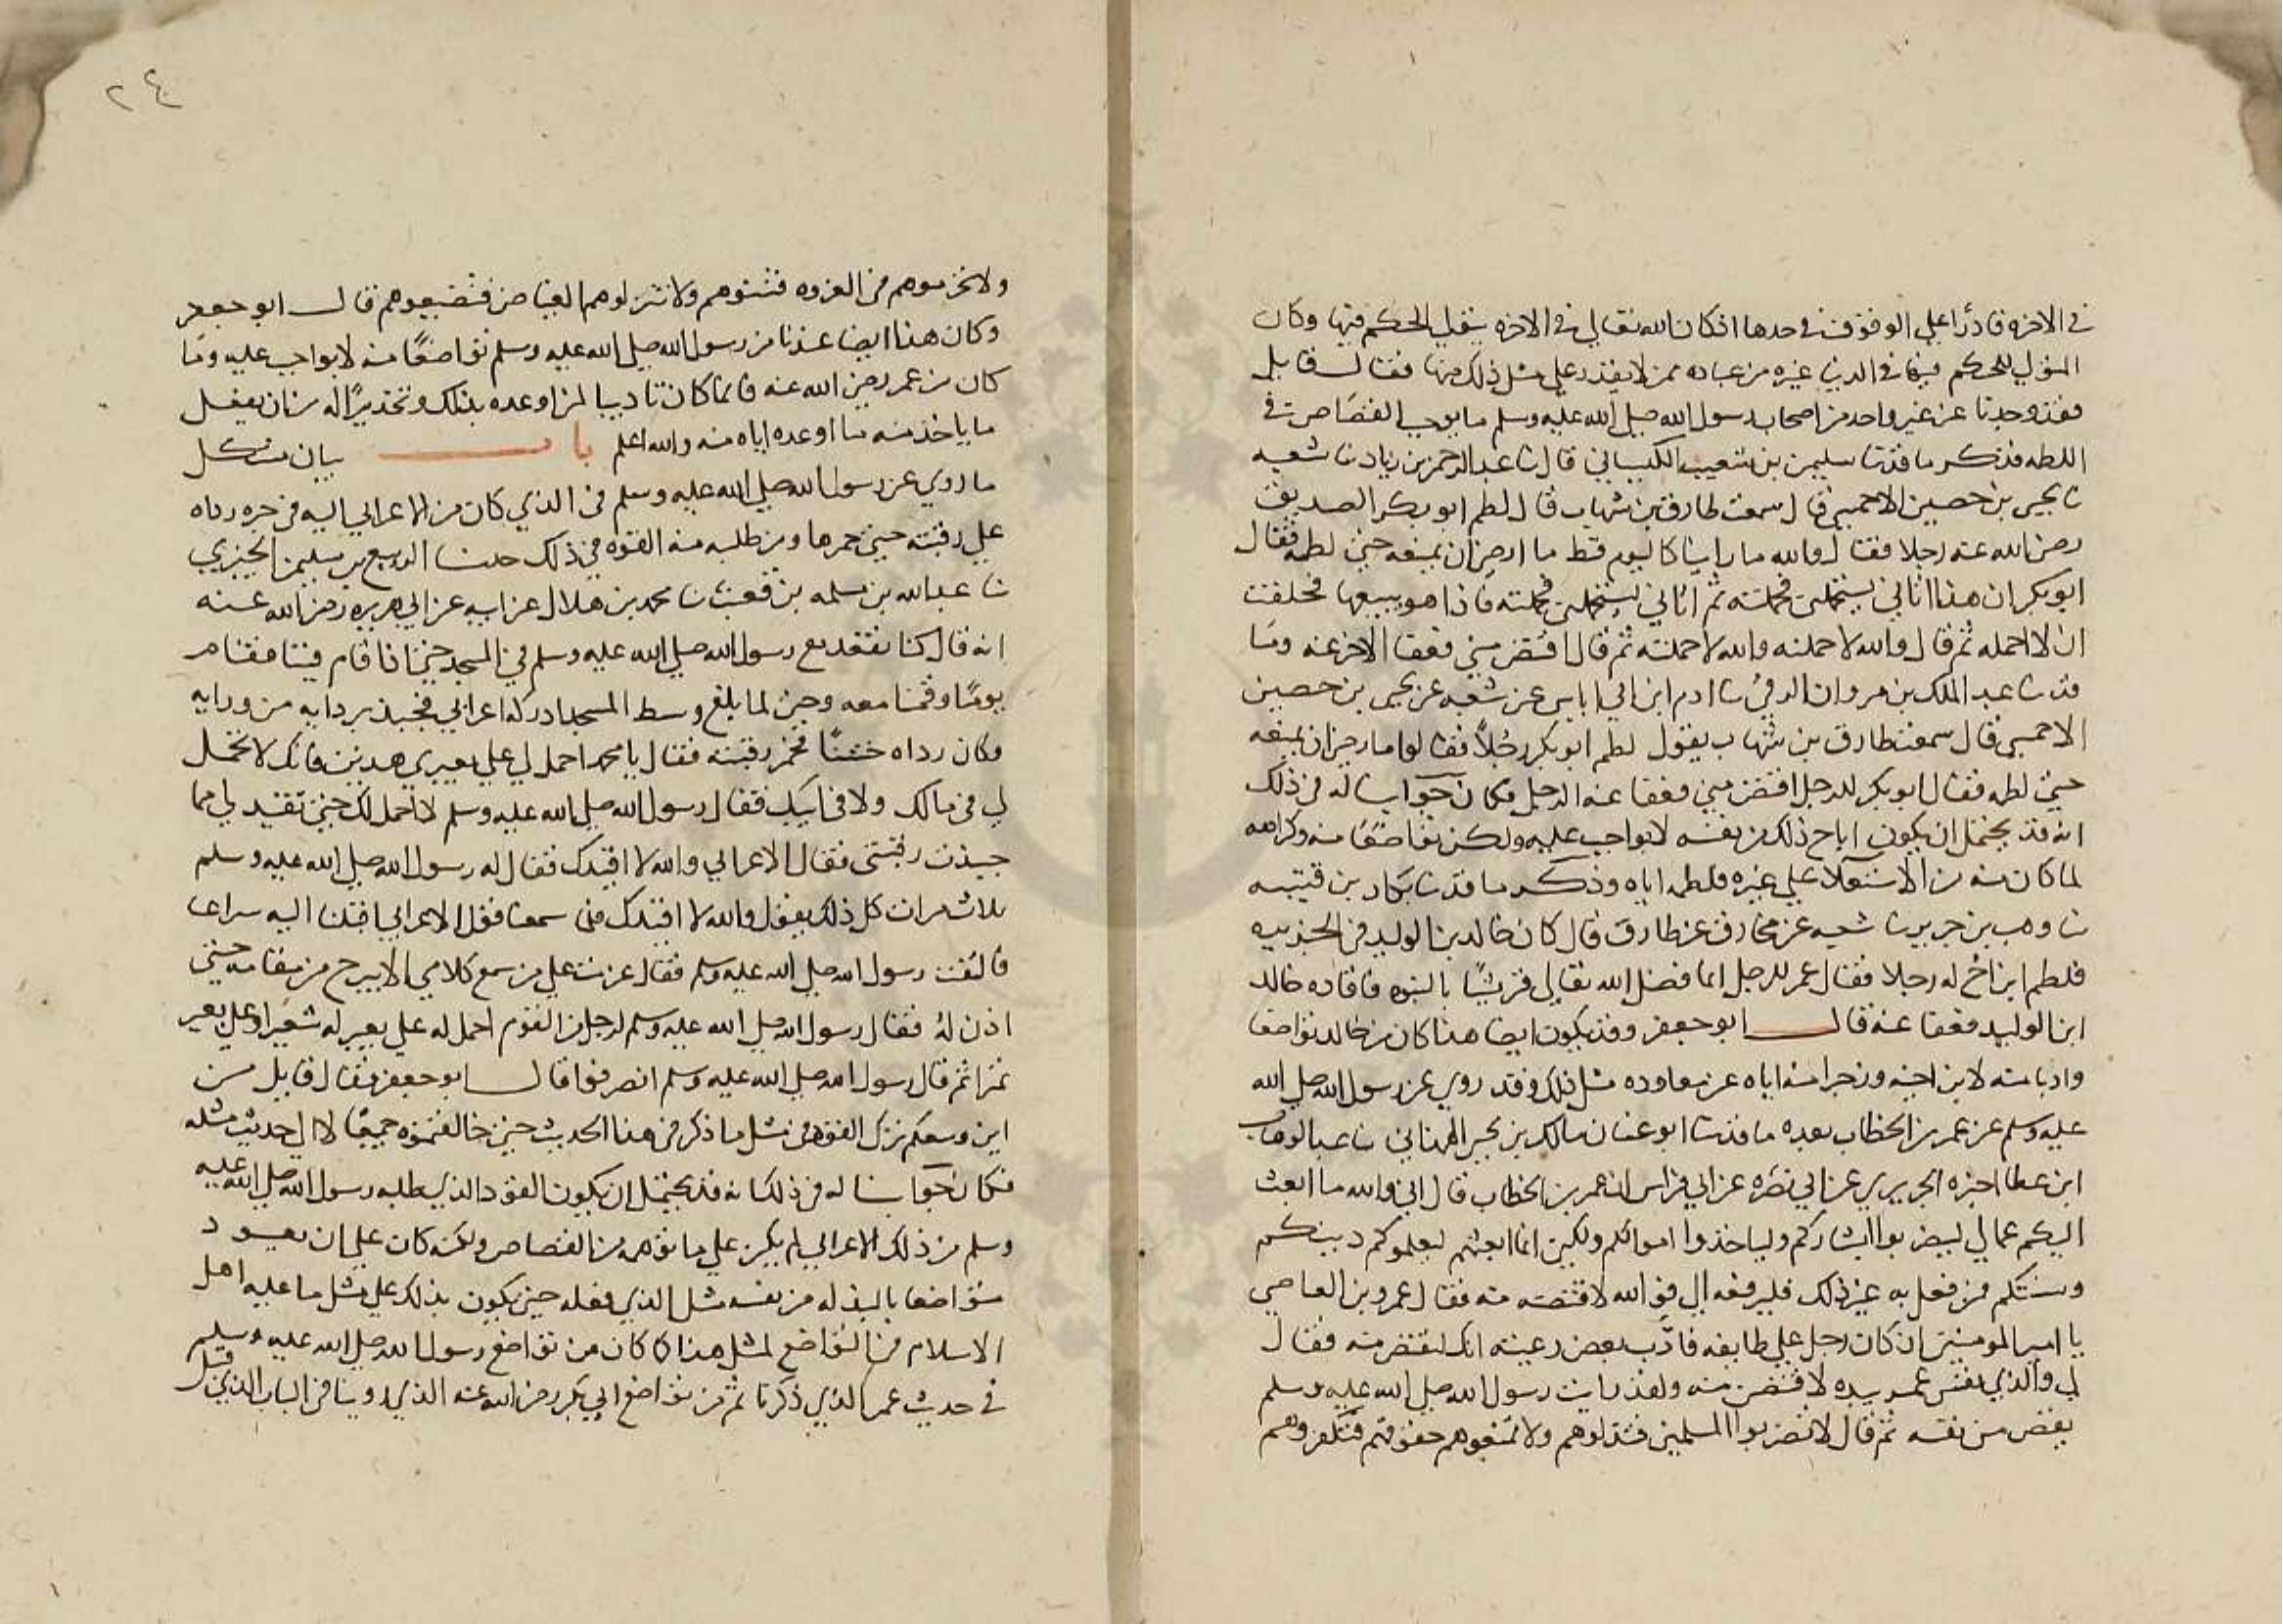 في الاخره قادرا علي الوقوف في حدها اذ كان الله تعالي في الاخره يتولي الحكم فيها وكان
المتولي للحكم فيها في الدنيا غيره من عباده ممن لا يقدر علي مثل ذلك منها فقال قايل
فقد وجدنا عن غير واحد من اصحاب رسول الله صلي الله عليه وسلم ما يوجب القصاص في
اللطمه فذكر ما قد نا سليمن بن شعيب الكيساني قال نا عبد الرحمن بن زياد نا شعبه
نا يحيى بن حصين الاحمسي قال سمعت طارق بن شهاب قال لطم ابو بكر الصديق
رضي الله عنه رجلا فقال والله ما راينا كاليوم قط ما ارضي ان يمنعه حتي لطمه فقال
ابو بكر ان هذا اتاني يستحملني فحملته ثم اتاني يستحملني فحملته فاذا هو يبيعها فحلفت
ان لا احمله ثم قال والله لا حملته والله لا حملته ثم قال اقتص مني فعفا الاخر عنه وما
قد نا عبد الملك بن مروان الرقي نا ادم ابن ابي اياس عن شعبه عن يحيى بن حصين
الاحمسي قال سمعت طارق بن شهاب يقول لطم ابو بكر رجلا فقالوا ما رضي ان يمنعه
حتي لطمه فقال ابو بكر للرجل اقتص مني فعفا عنه الرجل فكان جوابنا له في ذلك
انه قد يحتمل ان يكون اباح ذلك من نفسه لا بواجب عليه ولكن تواضعا منه وكراهه
لما كان منه من الاستعلاء علي غيره فلطمه اياه وذكر ما قد نا بكار بن قتيبه
نا وهب بن جرير نا شعبه عن مخارق عن طارق قال كان خالد بن الوليد في الجزيره
فلطم ابن اخ له رجلا فقال عمر للرجل انما فضل الله تعالي قريشا بالنبوه فاقاده خالد
ابن الوليد فعفا عنه قال ابو جعفر وقد يكون ايضا هذا كان من خالد تواضعا
وادبا منه لابن اخيه وزجرا منه اياه عن معاوده مثل ذلك وقد روي عن رسول الله صلي الله
عليه وسلم عن عمر بن الخطاب بعده ما قد نا ابو غسان مالك بن يحيى الهمداني نا عبد الوهاب
ابن عطا اخبره الجريري عن ابي نضره عن ابي فراس ان عمر بن الخطاب قال اني والله ما ابعث
اليكم عمالي ليضربوا ابشاركم ولياخذوا اموالكم ولكني انما ابعثهم ليعلموكم دينكم
وسنتكم فمن فعل به غير ذلك فليرفعه الي فوالله لاقتصنه منه فقال عمرو بن العاصي
يا امير المومنين ان كان رجل علي طايفه فادب بعض رعيته انك لتقتص منه فقال
لي والذي نفس عمر بيده لاقتصن منه ولقد رايت رسول الله صلي الله عليه وسلم
يقص من نفسه ثم قال لا تضربوا المسلمين فتذلوهم ولا تمنعوهم حقوقهم فتكفروهم
٢٤
ولا تحرموهم في الغزوه فتفتنوهم ولا تنزلوهم الغياض فتضيعوهم قال ابو جعفر
وكان هذا ايضا عندنا من رسول الله صلي الله عليه وسلم تواضعا منه لا بواجب عليه وما
كان من عمر رضي الله عنه فانما كان تاديبا لمن اوعده بذلك وتحذيرا له من ان يفعل
ما ياخذ منه ما اوعده اياه منه والله اعلم باب بيان مشكل
ما روي عن رسول الله صلي الله عليه وسلم في الذي كان من الاعرابي اليه في جره رداه
علي رقبته حتي حمرها ومن طلبه منه القود في ذلك حدثنا الربيع بن سليمن الجيزي
نا عبد الله بن مسلمه بن قعنب نا محمد بن هلال عن ابيه عن ابي هريره رضي الله عنه
انه قال كنا نقعد مع رسول الله صلي الله عليه وسلم في المسجد حتي اذا قام قمنا فقام
يوما وقمنا معه وحتي لما بلغ وسط المسجد ادركه اعرابي فجبذ بردايه من ورايه
وكان رداه خشنا فحمر رقبته فقال يا محمد احمل لي علي بعيري هذين فانك لا تحمل
لي من مالك ولا من ابيك فقال رسول الله صلي الله عليه وسلم لا احمل لك حتي تقيدني مما
جبذت رقبتي فقال الاعرابي والله لا اقيدك فقال له رسول الله صلي الله عليه وسلم
ثلاث مرات كل ذلك يقول والله لا اقيدك فلما سمعنا قول الاعرابي اقبلنا اليه سراعا
فالتفت رسول الله صلي الله عليه وسلم فقال عزمت علي من سمع كلامي الا يبرح من مقامه حتي
اذن له فقال رسول الله صلي الله عليه وسلم لرجل من القوم احمل له علي بعير له شعيرا وعلي بعير
تمرا ثم قال رسول الله صلي الله عليه وسلم انصرفوا قال ابو جعفر فقال قايل من
اين وسعكم ترك القود في مثل ما ذكر في هذا الحديث حتي خالفتموه جميعا لا الي حديث مثله
فكان جوابنا له في ذلك انه قد يحتمل ان يكون القود الذي طلبه رسول الله صلي الله عليه
وسلم من ذلك الاعرابي لم يكن علي ما توهمه من القصاص ولكنه كان علي ان يعود
متواضعا بالبذله من نفسه مثل الذي فعله حتي يكون بذلك علي مثل ما عليه اهل
الاسلام من التواضع لمثل هذا كما كان من تواضع رسول الله صلي الله عليه وسلم
في حديث عمر الذي ذكرنا ثم من تواضع ابي بكر رضي الله عنه الذي روينا في الباب الذي قبل